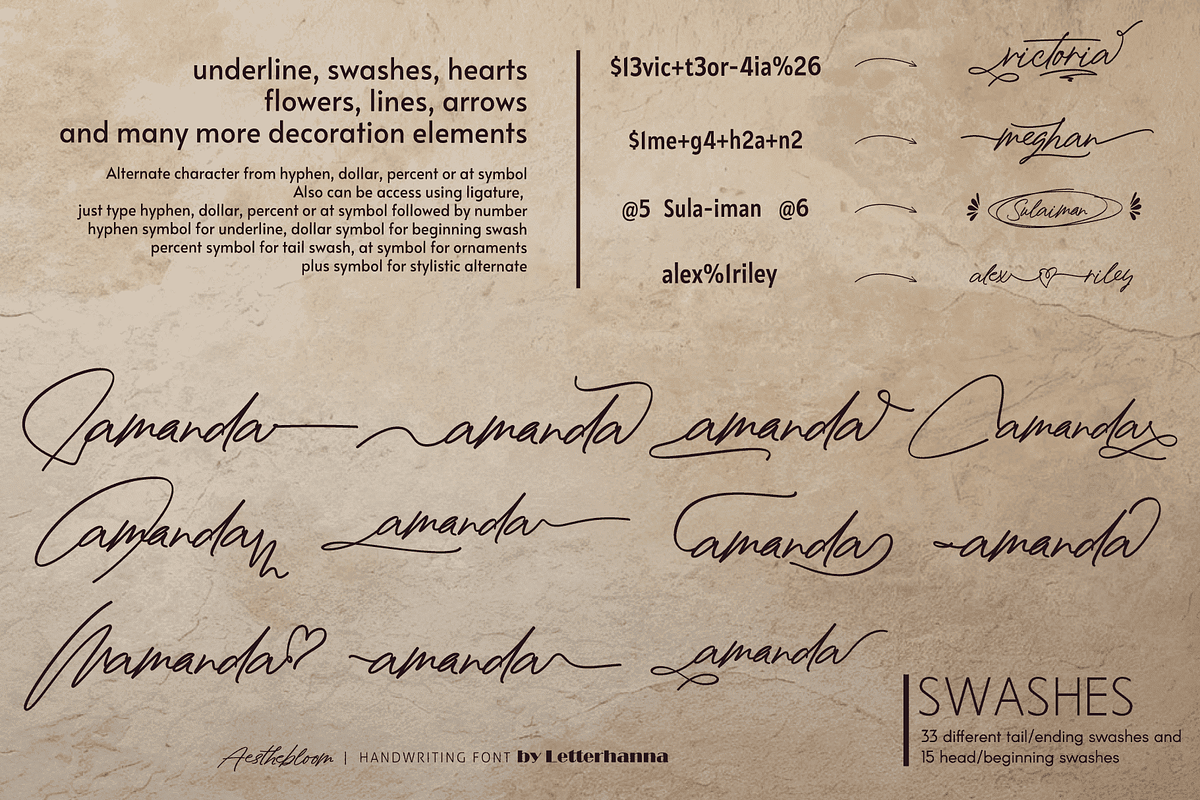 underline, swashes, hearts
flowers, lines, arrows
and many more decoration elements
Alternate character from hyphen, dollar, percent or at symbol
Also can be access using ligature,
just type hyphen, dollar, percent or at symbol followed by number
hyphen symbol for underline, dollar symbol for beginning swash
percent symbol for tail swash, at symbol for ornaments
plus symbol for stylistic alternate
$13vic+t3or-4ia%26
victoria
$1me+g4+h2a+n2
meghan
@5 Sula-iman @6
Sulaiman
alex%1riley
alex riley
amanda amanda amanda amanda
amanda amanda amanda amanda
amanda amanda amanda
SWASHES
33 different tail/ending swashes and
15 head/beginning swashes
Aesthebloom | HANDWRITING FONT by Letterhanna